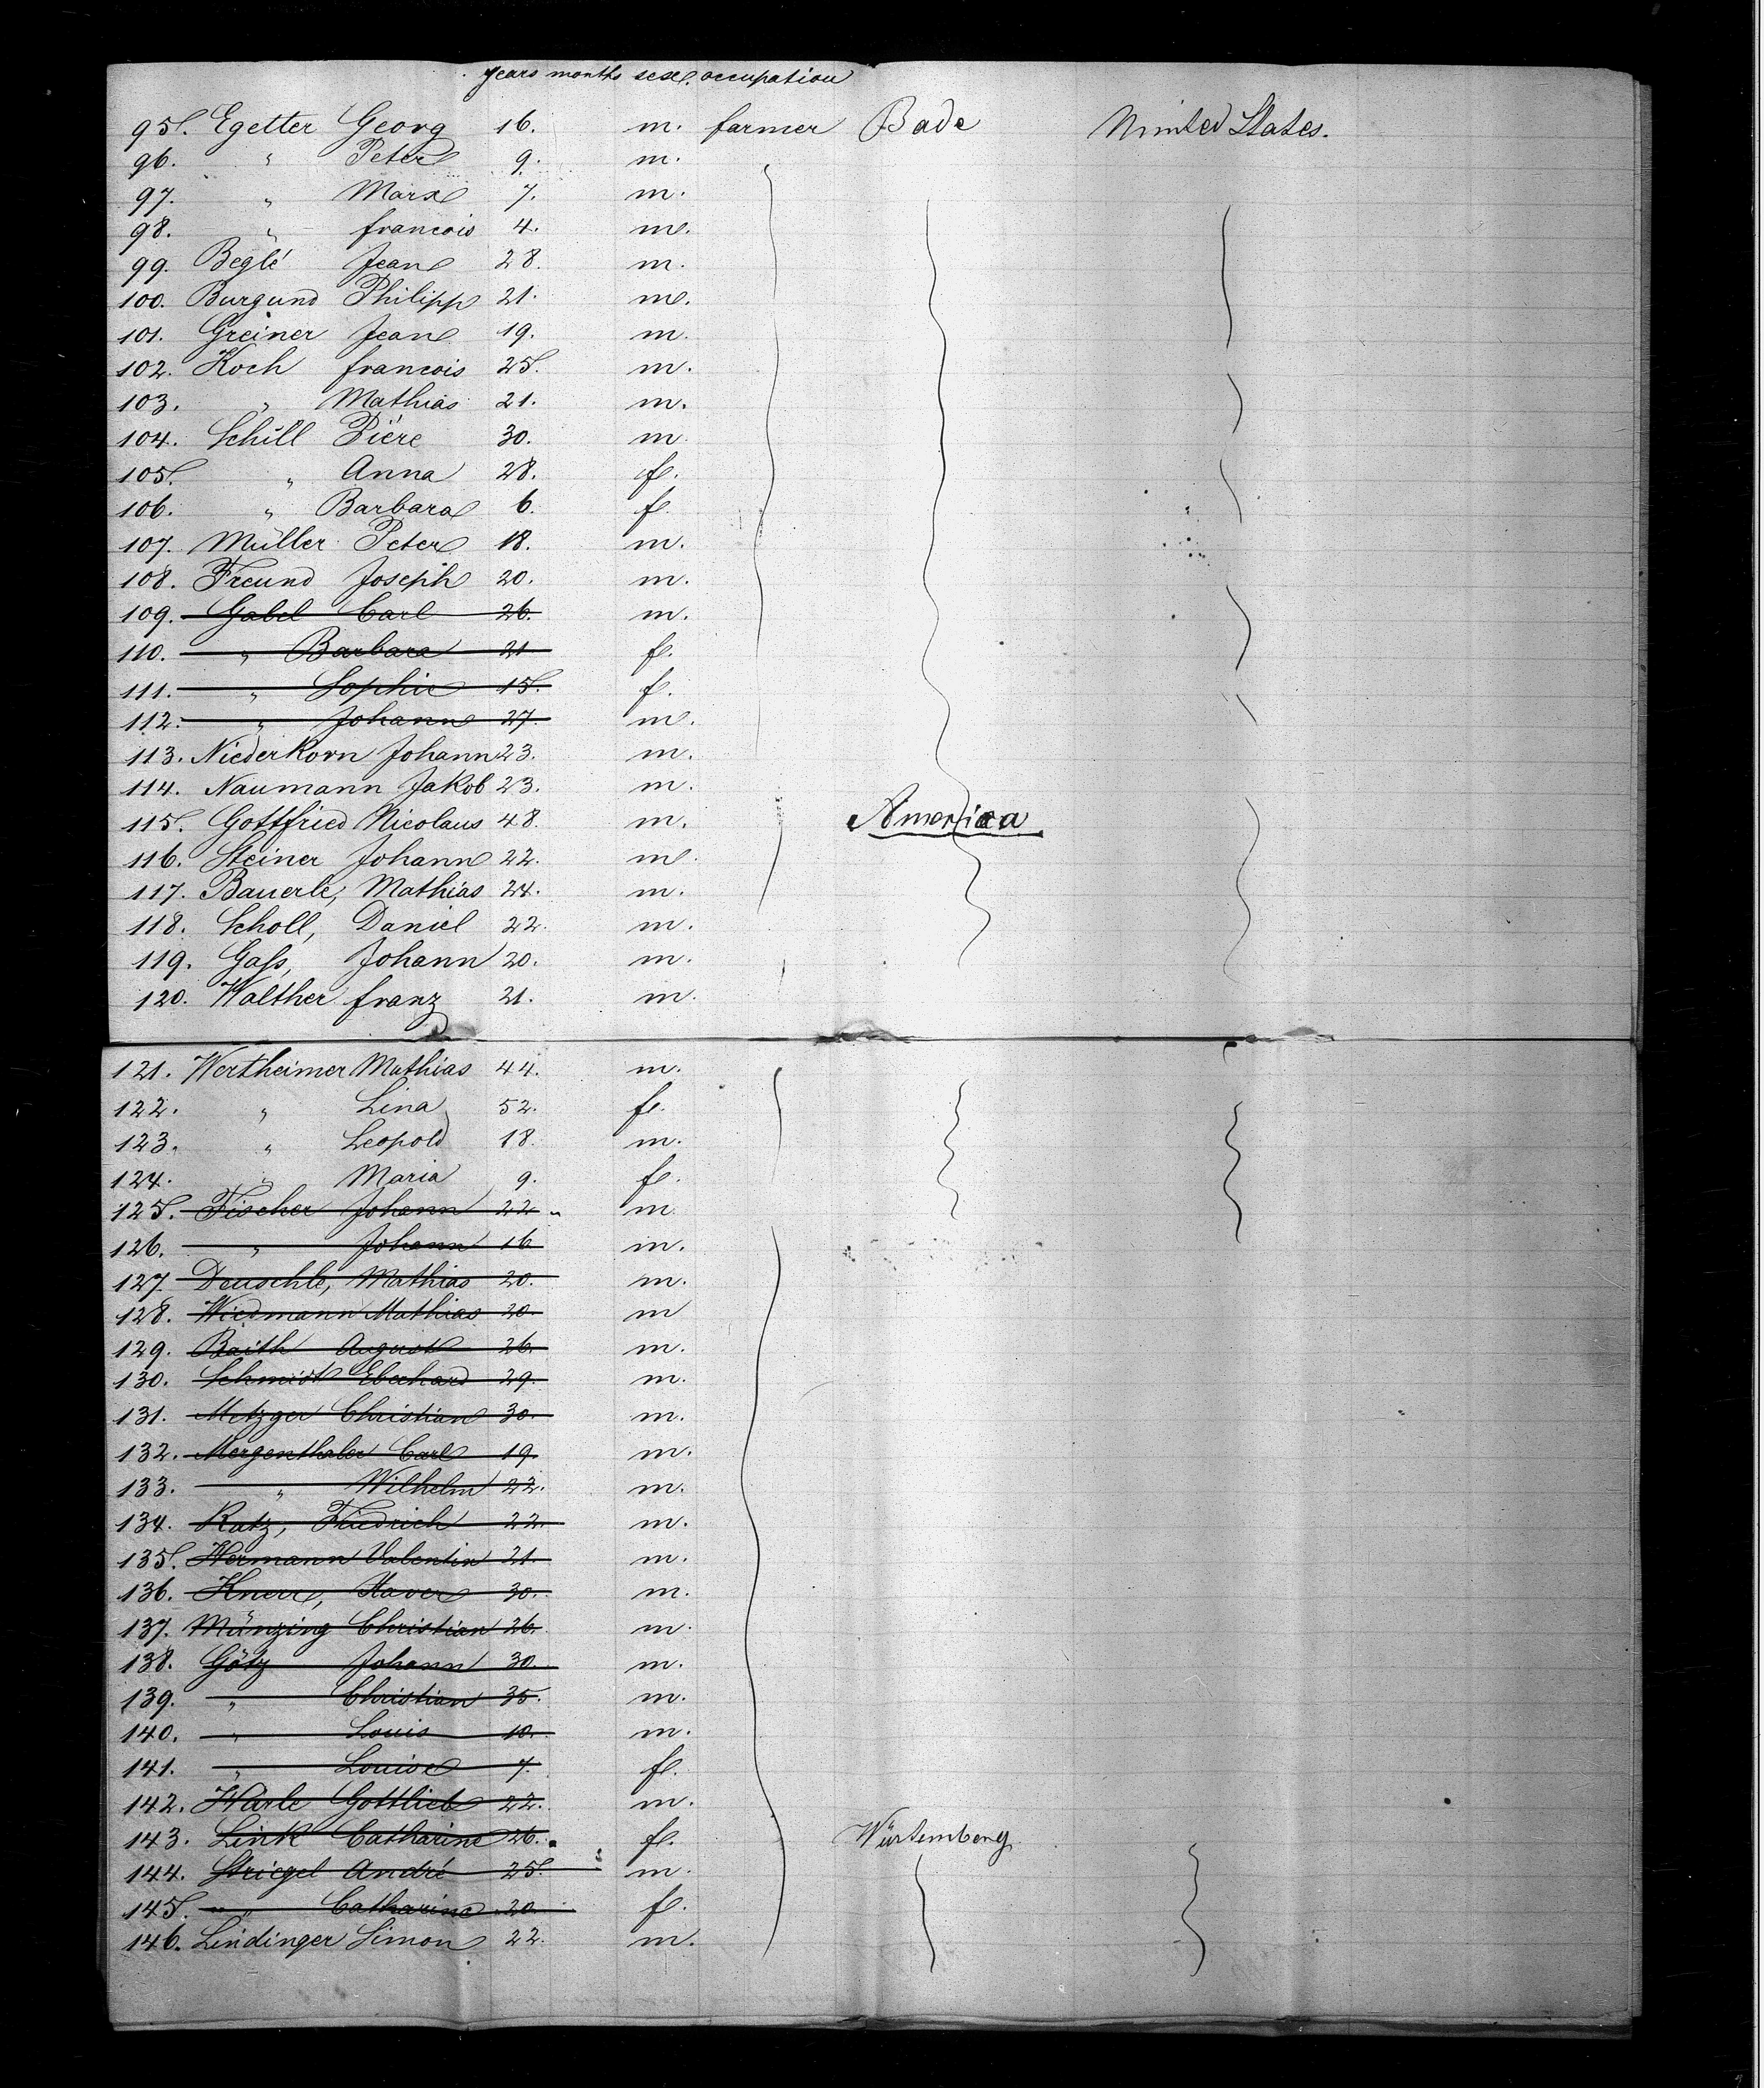 years months sex. occupation
95. Egetter Georg 16. m. farmer Bade Uninted States.
96. " Peter 9. m.
97. " Marx 7. m.
98. " francois 4. m.
99. Beglé Jean 28. m.
100. Burgund Philipp 21. m.
101. Greiner Jean 19. m.
102. Koch francois 25. m.
103. " Mathias 21. m.
104. Schill Piére 30. m.
105. " Anna 28. f.
106. " Barbara 6. f.
107. Müller Peter 18. m.
108. Freund Joseph 20. m.
109. Gabel Carl 26. m.
110. " Barbara 21 f.
111. " Sophie 15. f.
112. " Johann 27. m.
113. Niederkorn Johann 23. m.
114. Naumann Jakob 23. m.
115. Gottfried Nicolaus 48. m. America
116. Steiner Johann 22. m.
117. Bauerle, Mathias 24. m.
118. Scholl, Daniel 22. m.
119. Gaſs, Johann 20. m.
120. Walther franz 21. m.
121. Wertheimer Mathias 44. m.
122. " Lina 52. f.
123. " Leopold 18. m.
124. " Maria 9. f.
125. Fischer Johann 22 " m
126. " Johann 16 m.
127. Deuschle, Mathias 20. m.
128. Wiedmann Mathias 20. m
129. Baith August 26. m.
130. Schmidt Eberhard 29. m.
131. Metzger Christian 30. m.
132. Mergenthaler Carl 19. m.
133. " Wilhelm 22. m.
134. Ratz, Friedrich 22. m.
135. Hermann Valentin 21. m.
136. Knerr, Xaver 30. m.
137. Münzing Christian 26. m.
138. Götz Johann 30. m.
139. " Christian 35. m.
140. " Louis 10. m.
141. " Louise 7. f.
142. Harle Gottlieb 22. m.
143. Link Catharine 26. f. Würtemberg
144. Striegel André 25. m.
145. " Catharine 20. f.
146. Lindinger Simon 22. m.